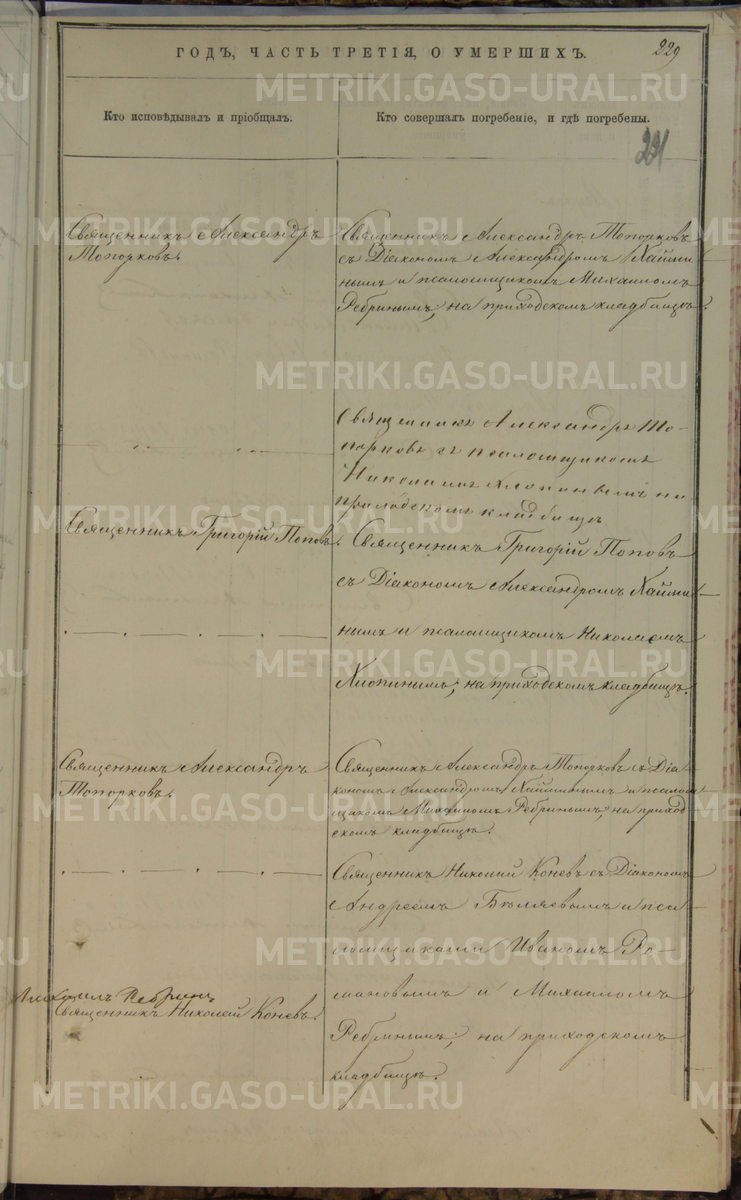 229
ГОДЪ, ЧАСТЬ ТРЕТІЯ, О УМЕРШИХЪ.
Кто исповѣдывалъ и пріобщалъ.
Кто совершалъ погребеніе, и гдѣ погребены.
231
Священникъ Александръ
Топорковъ.
Священникъ Александръ Топорковъ
съ Діакономъ Александромъ Хайми-
нымъ и псаломщикомъ Михаиломъ
Ребринымъ, на приходскомъ кладбищѣ.
Священникъ Александръ То-
порковъ съ псаломщикомъ
Николаемъ Хлопинымъ на
приходскомъ кладбищѣ
Священникъ Григорій Поповъ.
Священникъ Григорій Поповъ
съ Діакономъ Александромъ Хайми-
нымъ и псаломщикомъ Николаемъ
Хлопинымъ, на приходскомъ кладбищѣ.
Священникъ Александръ
Топорковъ.
Священникъ Александръ Топорковъ съ Діа-
кономъ Александромъ Хайминымъ и псалом-
щикомъ Михаиломъ Ребринымъ, на приход-
скомъ кладбищѣ.
Священникъ Николай Коневъ съ Діакономъ
Андреемъ Бѣляевымъ и пса-
ломщиками Иваномъ Ро-
мановымъ и Михаиломъ
Ребринымъ, на приходскомъ
кладбищѣ.
Михаилъ Ребринъ
Священникъ Николай Коневъ.
METRIKI.GASO-URAL.RU